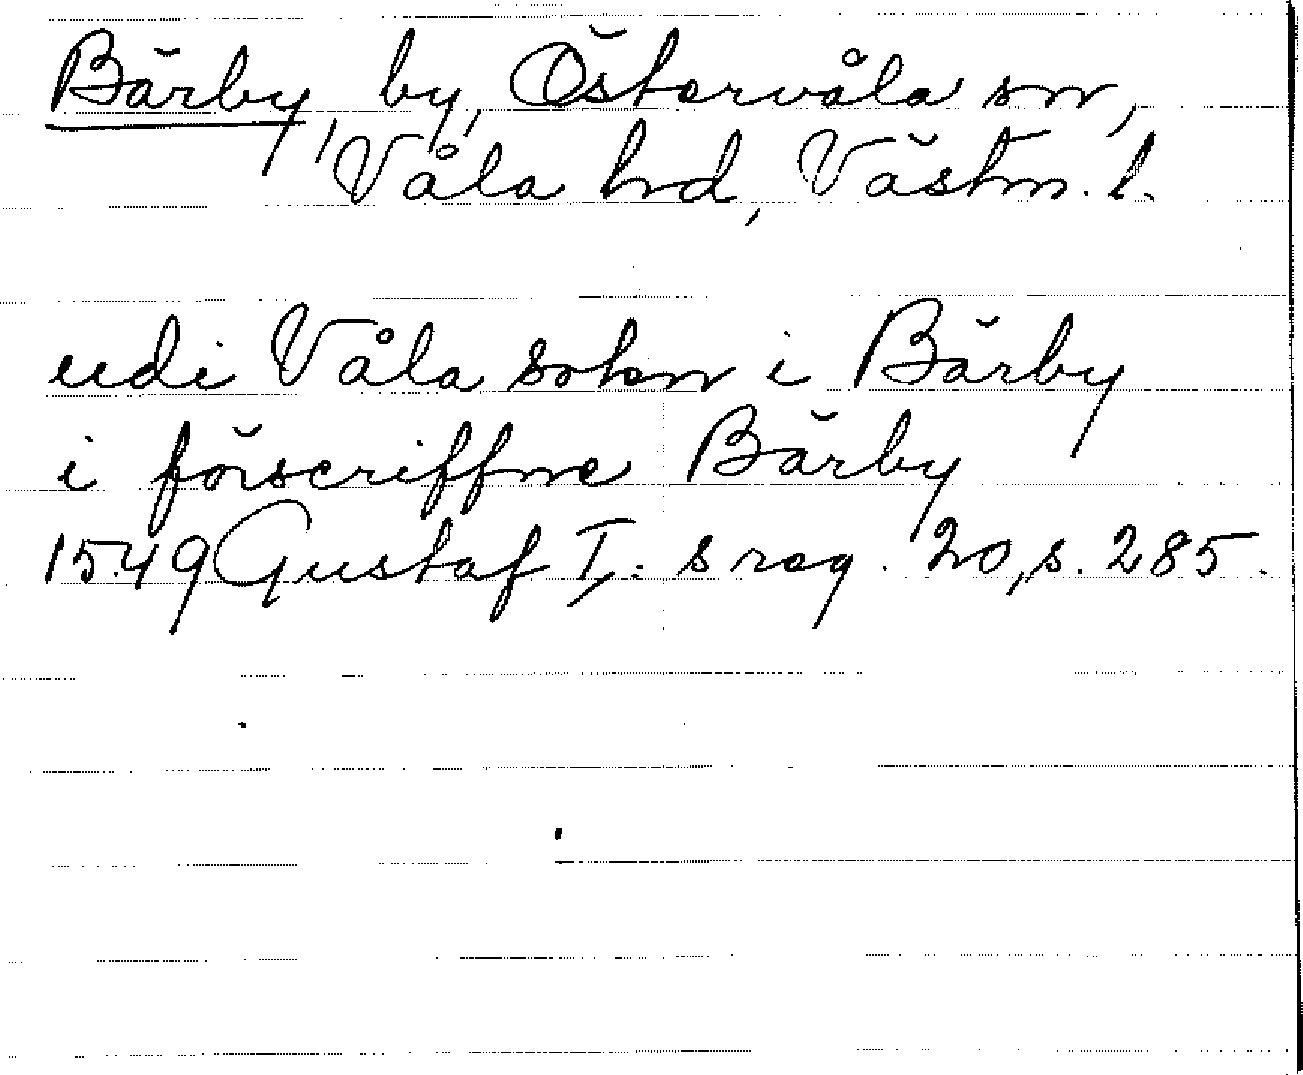 Bärby by, Östervåla sn,
Våla hd, Västm. l.
udi Våla sokn i Bärby
i förscriffne Bärby
1549 Gustaf I: s reg. 20, s. 285.